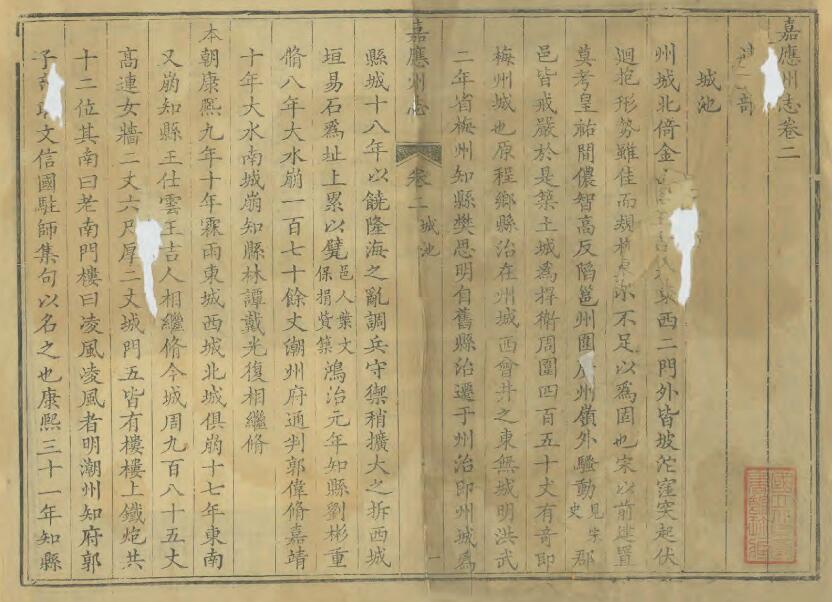 嘉應州志卷二
部
城池
州城北倚金
東西二門外皆坡沱窪突起伏
迴抱形勢雖佳而規
不足以為固也宋以前建置
莫考皇祐間儂智高反陷邕州圍
州嶺外騷動見宋史郡
邑皆戒嚴於是築土城為捍衛周圍四百五十丈有奇即
梅州城也原程鄉縣治在州城西會井之東無城明洪武
二年省梅州知縣樊思明自舊縣治遷于州治即州城為
嘉應州志
卷二
城池
一
縣城十八年以饒隆海之亂調兵守禦稍擴大之拆西城
垣易石為址上累以甓邑人葉文保捐貲築鴻治元年知縣劉彬重
脩八年大水崩一百七十餘丈潮州府通判郭偉脩嘉靖
十年大水南城崩知縣林譚戴光復相繼脩
本朝康熙九年十年霖雨東城西城北城俱崩十七年東南
又崩知縣王仕雲王吉人相繼脩今城周九百八十五丈
高連女牆二丈六尺厚二丈城門五皆有樓樓上鐵炮共
十二位其南曰老南門樓曰凌風凌風者明潮州知府郭
子
文信國駐師集句以名之也康熙三十一年知縣